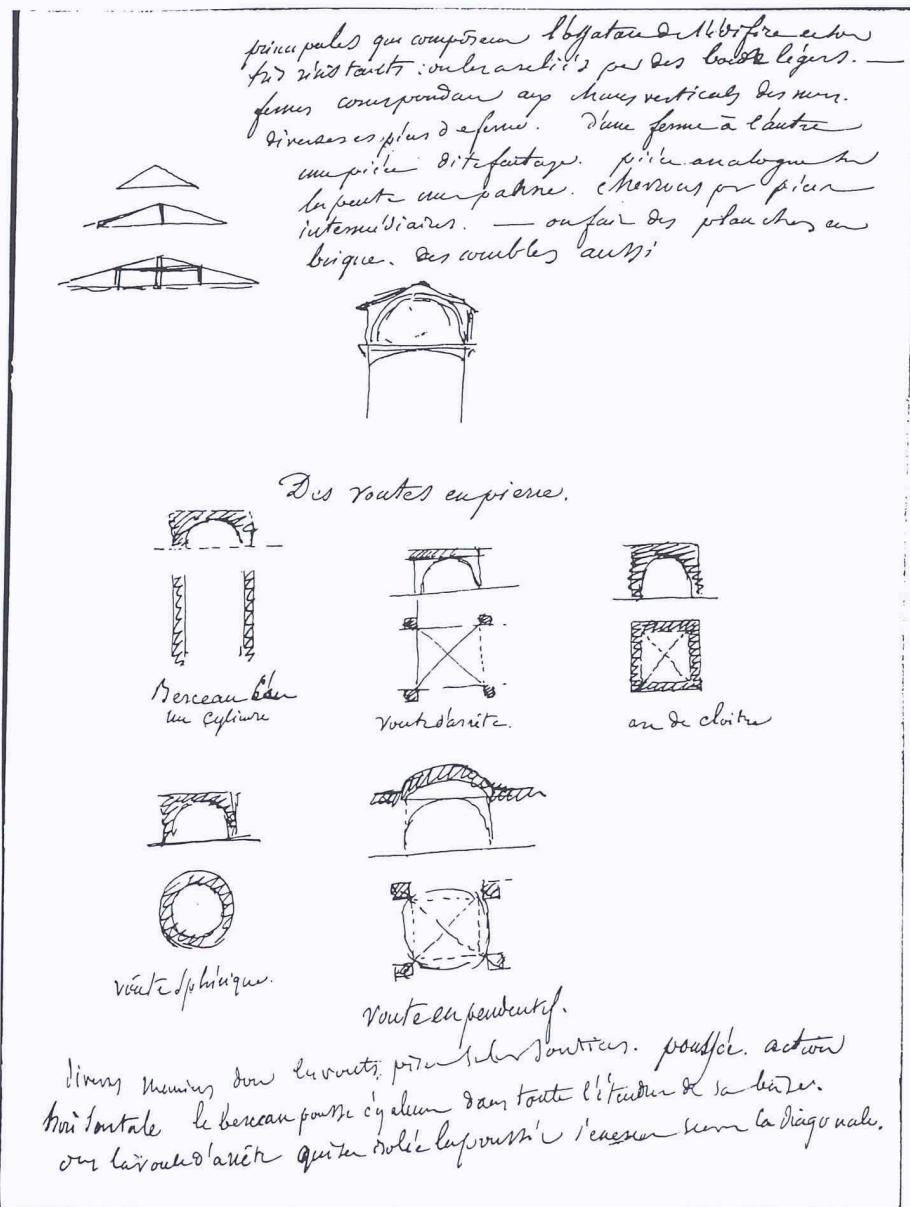 principales qui composent l'ossature de l'édifice en bois
très résistants : on les a reliés par des bois légers. —
fermes correspondant aux chaînes verticales des murs.
diverses espèces de ferme. D'une ferme à l'autre
une pièce dite faîtage. pièce analogue sur
la pente une panne. Chevrons pr pièces
intermédiaires. — on fait des planchers en
brique. des combles aussi
Des voutes en pierre.
Berceau
un cylindre
voute d'arrête.
arc de cloitre
voute sphérique.
voute en pendentif.
divers manières dont les voutes sur les soutiens. poussée. action
horisontale le berceau pousse également dans toute l'étendue de sa base.
la voute d'arrête qui est isolée la poussée s'exerce suivant la diagonale.